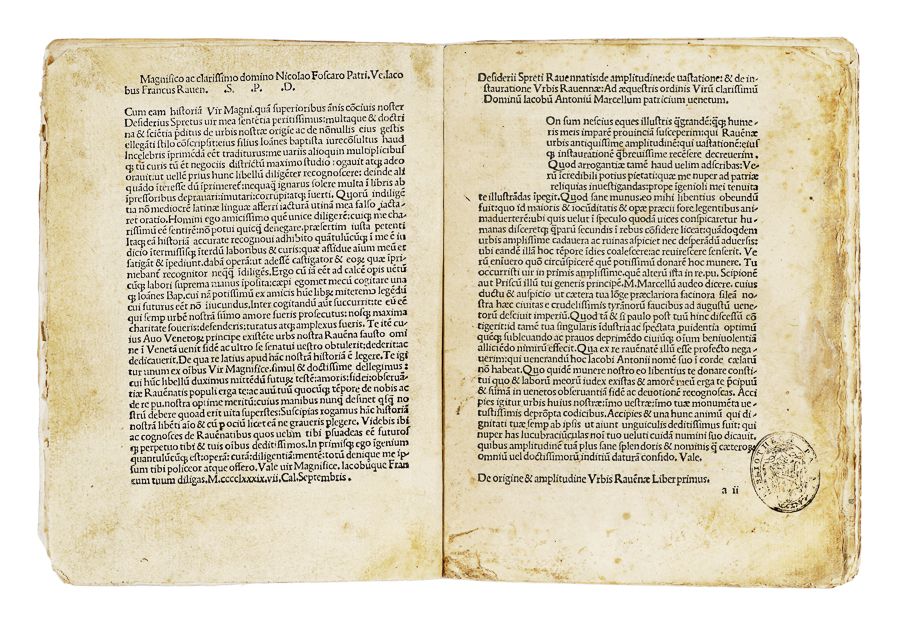 Magnifico ac clarissimo domino Nicolao Foscaro Patri. Ve. Iaco
bus Francus Rauen. .S. .P. .D.
Cum eam historiã Vir Magni. quã superioribus ãnis cõciuis noster
Desiderius Spretus uir mea sentẽtia peritissimus: multaqȝ & doctri
na & sciẽtia pditus de urbis nostræ origĩe ac de nõnullis eius gestis
ellegãti stilo cõscripsit: eius filius Ioãnes baptista iurecõsultus haud
Incelebris ĩprimẽdã eẽt traditurus: me uariis alioquin multiplicibus
qȝ tũ curis tũ ẽt negociis districtũ maximo studio: rogauit atqȝ adeo
orauit: ut uellẽ prius hunc libellũ diligẽter recognoscere: deinde ali
quãdo ĩteresse dũ ĩprimeret: nequaqȝ ignarus solere multa ĩ libris ab
ĩpressoribus deprauari: imutari: corrũpi atqȝ ĩuerti. Quorũ indiligẽ
tia nõ mediocrẽ latinæ linguæ afferri iacturã utina mea falso iacta-
ret oratio. Homini ego amicissimo quẽ unice diligerẽ: cuiqȝ me cha-
rissimũ eẽ sentirẽ: nõ potui quicqȝ denegare. præsertim iusta petenti
Itaqȝ eã historiã accurate recognoui adhibito
diciο
fatigãt & ĩpediunt. dabã operã ut adesse castigator & eoȝ quæ ĩpri-
mebant recognitor neqȝ ĩdiligẽs. Ergo cũ iã eẽt ad calcẽ opis uẽtũ
cũqȝ labori suprema manus ĩposita: cæpi egomet mecũ cogitare una
qȝ Ioãnes Bap. cui nã potissimũ ex amicis hũc libȝ mitterẽmo legẽdũ
cui futurus eẽt nõ iucundus. Inter cogitandũ aut succurrit: te eũ eẽ
qui semp urbẽ nostrã sũmo amore fueris prosecutus: nosqȝ maxima
charitate foueris: defenderis: tutatus atqȝ amplexus fueris. Te itẽ cu
ius Auo Venetoȝ principe existẽte urbs nostra Rauẽna fausto omi
ne ĩ Venetã uenit fidẽ ac ultro se senatui uestro obtulerit: dederit ac
dedicauerit. De qua re latius apud hãc nostrã historiã ẽ legere. Te igi
tur unum ex oĩbus Vir Magnifice. simul & doctissime dellegimus:
cui hũc libellũ duximus mittẽdũ futuȝ testẽ: amoris: fidei: obseruã-
tiæ Rauẽnatis populi erga te: ac auũ tuũ quocũqȝ tẽpore de nobis ac
de re pu. nostra optime meritũ: cuius manibus nunqȝ desunt
strũ debere quoad erit uita superstes: Suscipias rogamus hãc historiã
nostrã libẽti aĩo & cũ pociũ licet eã ne graueris plegere. Videbis ibi
ac cognosces de Rauẽnatibus quos uelim tibi psuadeas eẽ futuros
qȝ perpetuo tibi & tuis deditissimos. In primisqȝ ego ĩgenium
quantulũcũqȝ est: operã: curã: diligẽtiã: mentẽ: totũ denique me ip-
sum tibi policeor atqȝ offero. Vale uir Magnifice. Iacobũque Fran
cum tuum diligas. M.CCCCLXXXIX. vii. Cal. Septembris.
Desiderii Spreti Rauennatis: de amplitudine: de uastatione: & de in-
stauratione Vrbis Rauennæ: Ad æquestris ordinis Virũ clarissimũ
Dominũ Iacobũ Antoniũ Marcellum patricium uenetum.
On sum nescius eques illustris qȝgrandẽ: qȝqȝ hume-
ris meis imparẽ prouinciã susceperim: qui Rauẽnæ
urbis antiquissime amplitudinẽ: qui uastationẽ: eius
qȝ instaurationẽ qȝbreuissime recẽsere decreuerim.
Quod arrogantiæ tamẽ haud uelim adscribas: Ve-
rũ icredibili potius pietati: quæ me nuper ad patriæ
reliquias inuestigandas: prope igenioli mei tenuita
te illustrãdas ĩpegit. Quod sane munus: eo mihi libentius obeundũ
fuit: quo id maioris & iocũditatis & opæ præcii fore. legentibus ani
maduerterẽ: ubi qȝs uelut ĩ speculo quodã uices cõspicaretur huma
nas discreterqȝ: qȝparũ secundis ĩ rebus cõsidere liceat: quãdoqȝdem
urbis amplissime cadauera ac ruinas aspiciet nec desperãdũ aduersis:
ubi eandẽ illã hoc tẽpore ĩdies coalescere: ac reuirescere senserit. Ve
rũ eniuero quõ circũspicerẽ que potissimũ donarẽ hoc munere. Tu
occurristi uir in primis amplissime. quẽ alterũ ista in re. pu. Scipionẽ
aut Priscũ illũ tui generis principẽ. M. Marcellũ audeo dicere. cuius
ductu & auspicio ut cætera tua lõge præclariora facinora sileã no-
stra hæc ciuitas e crudelissimis tyrãnorũ faucibus ad augustũ uene-
torũ desciuit imperiũ. Quod tã & si paulo post tuũ hinc discessũ cõ
tigerit: id tamẽ tua singularis ĩdustria ac spectata puidentia optimũ
quẽqȝ subleuando ac prauos deprimẽdo ciuiũqȝ oĩum beniuolẽtiã
alliciẽdo nimirũ effecit. Qua ex re rauẽnatẽ illũ esse profecto nega-
uerim: qui uenerandũ hoc Iacobi Antonii nomẽ suo ĩ corde cælatũ
nõ habeat. Quo quidẽ munere nostro eo libentius te donare consti
tui quo & laborũ meorũ iudex existas & amorẽ meũ erga te pcipuũ
& sũmã in uenetos obseruantiã fidẽ ac deuotionẽ recognoscas. Acci
pies igitur urbis huius nostræ: ĩmo uestræ: ĩmo tuæ monũmẽta ue-
tustissimis deprõpta codicibus. Accipies & una hunc animũ qui di-
gnitati tuæ semp ab ipsis ut aiunt unguiculis deditissimus fuit: qui
nuper has lucubraciũculas nõ tuo ueluti cuidã numini suo dicauit.
quibus amplitudinẽ tuã plus sane splendoris & nominis qȝ cæteroȝ
omniũ uel doctissimorũ ĩnditiũ daturã confido. Vale.
De origine & amplitudine Vrbis Rauẽnæ Liber primus.
a ii